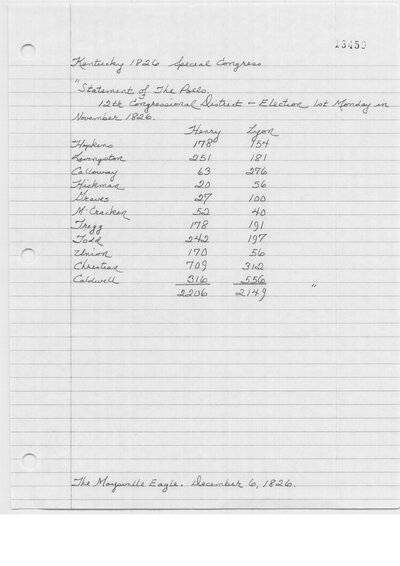 13459
Kentucky 1826 Special Congress
"Statement of The Polls.
12th Congressional District - Election 1st Monday in
November 1826.
Henry Lyon
Hopkins 178 154
Livingston 251 181
Calloway 63 276
Hickman 20 56
Graves 27 100
McCracken 52 40
Tregg 178 191
Todd 242 197
Union 170 56
Christian 709 312
Caldwell 316 556 "
2206 2149
The Maysville Eagle. December 6, 1826.